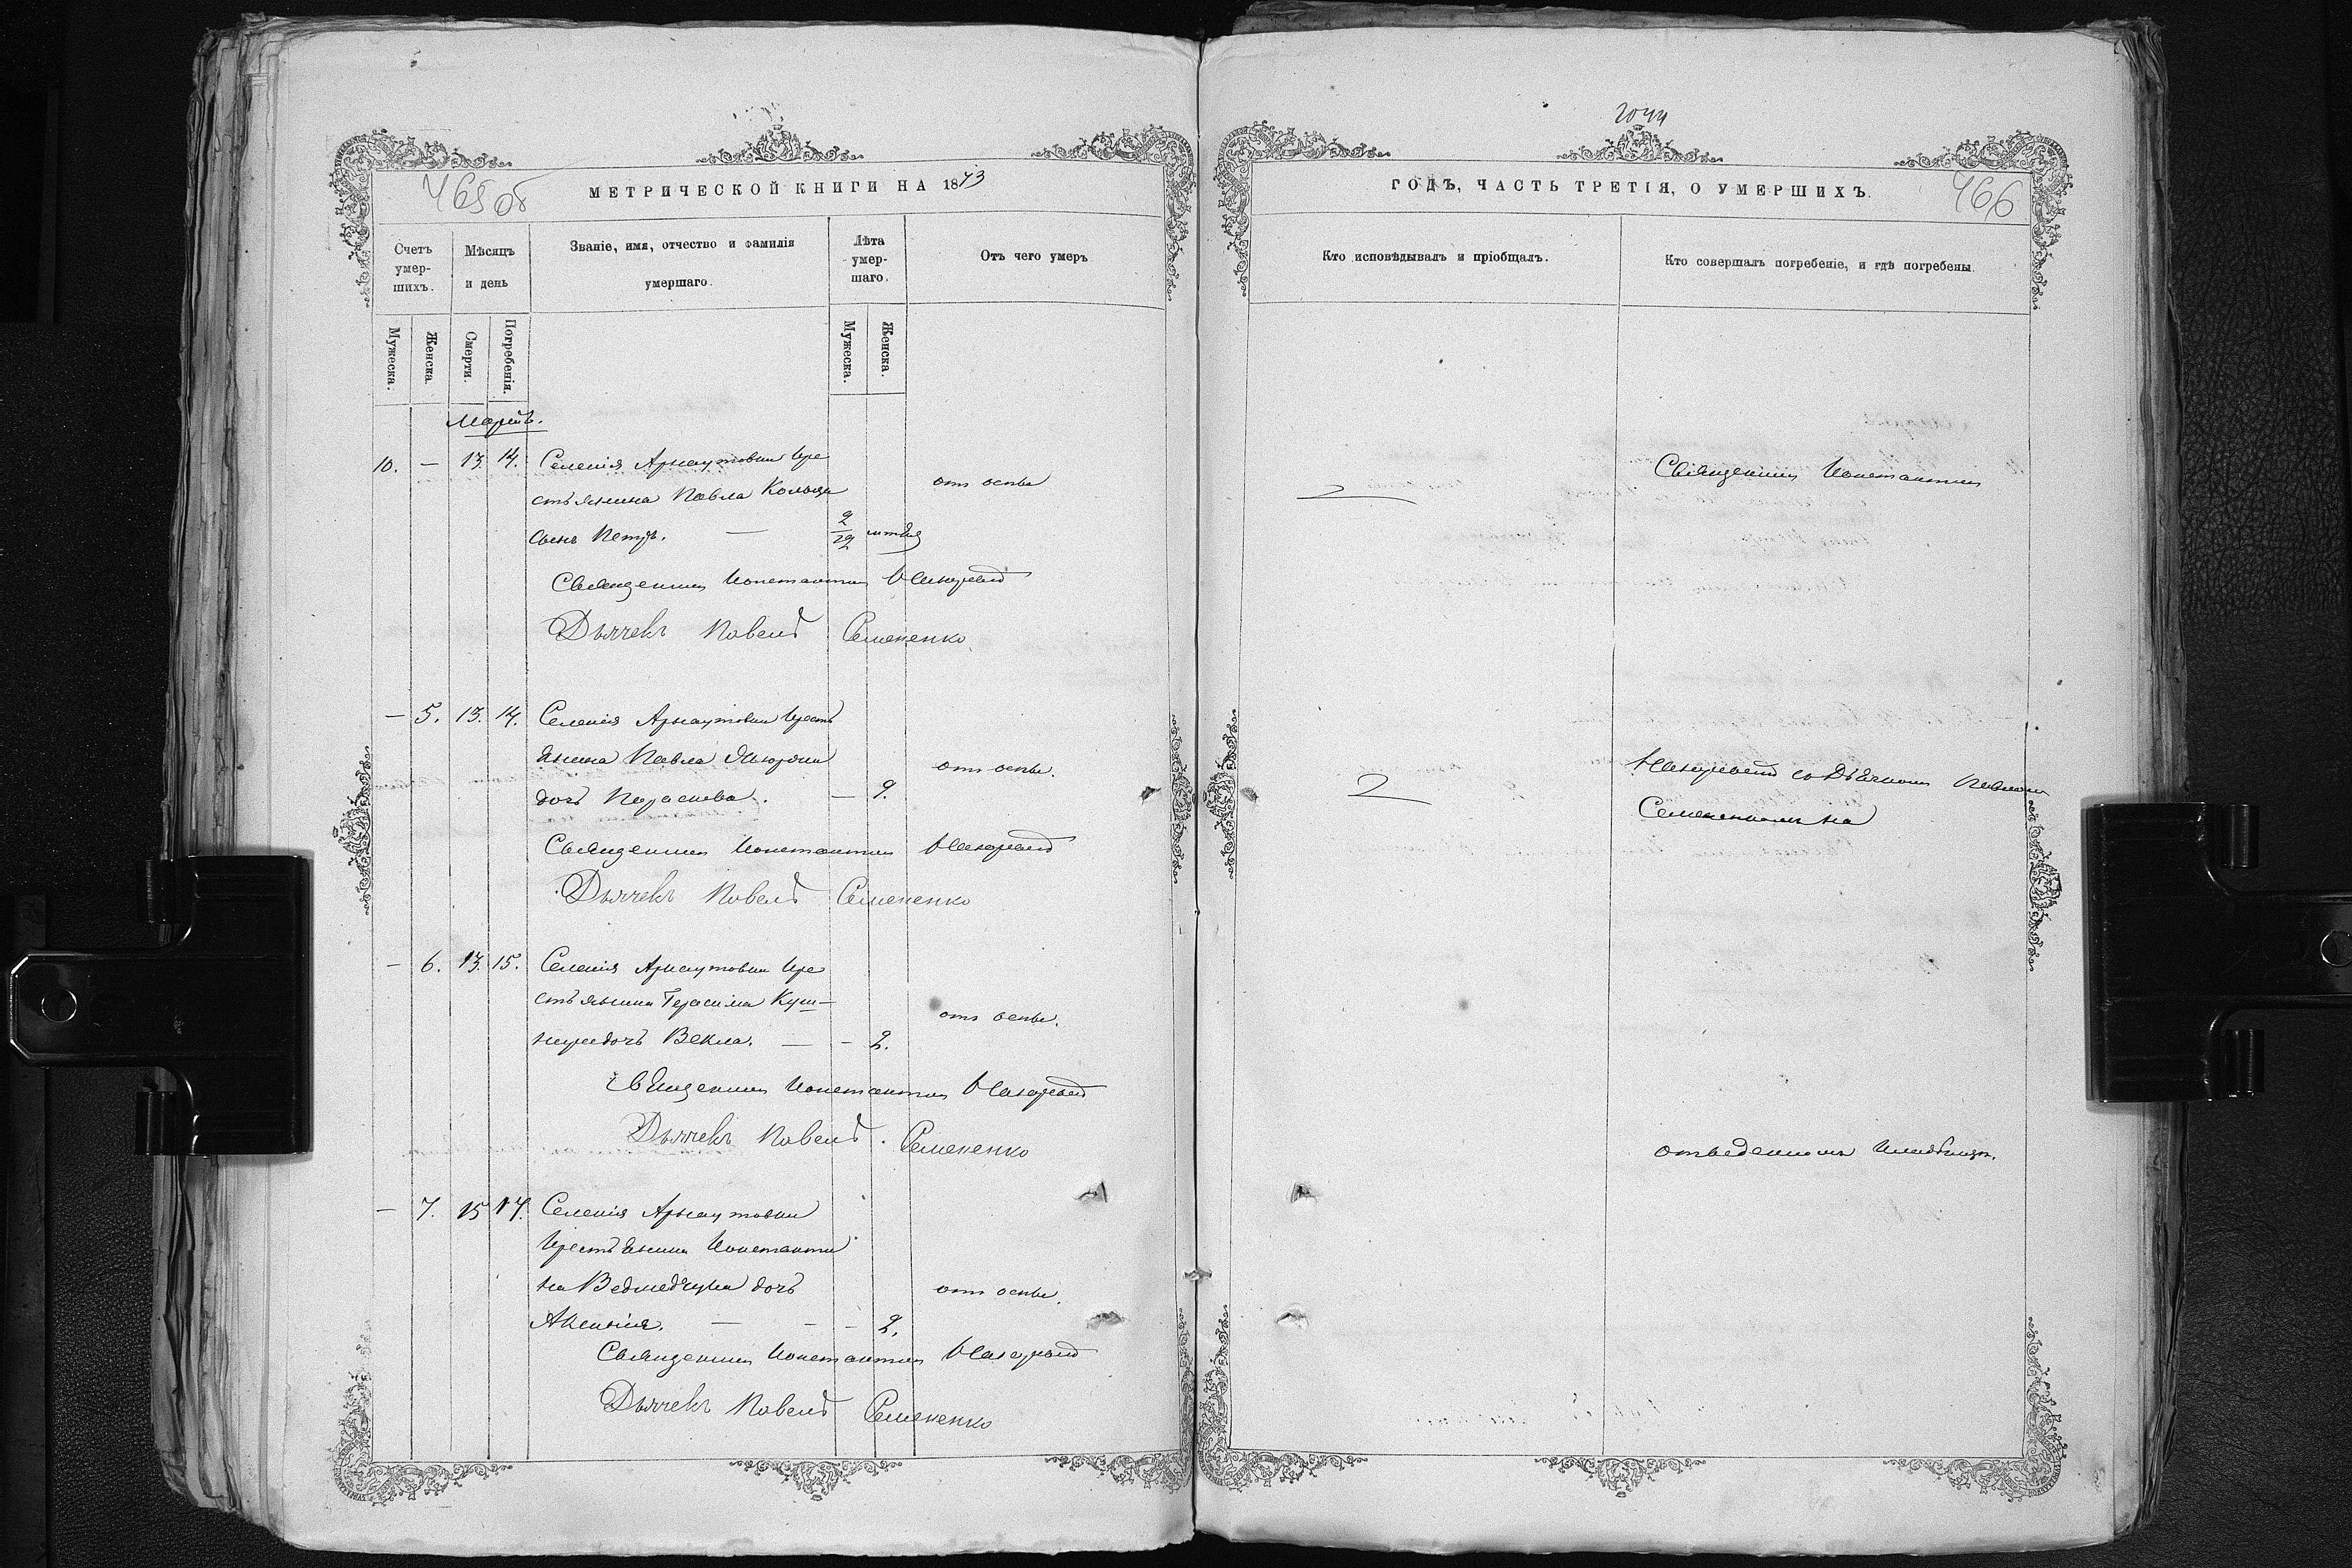 465 об
МЕТРИЧЕСКОЙ КНИГИ НА 1873
Счетъ умер-шихъ.
Мѣсяцъ и день
Званіе, имя, отчество и фамилія умершаго.
Лѣта умер-шаго.
Отъ чего умеръ
Мужеска.
Женска.
Смерти.
Погребенія.
Мужеска.
Женска.
Мартъ.
10. — 13. 14. Селенія Арнаутовки кре
стьянина Павла
сынъ Петръ. —
от оспы
Священникъ Константин
Дьячекъ Павелъ Семененко
— 5. 13. 14. Селенія Арнаутовки крест
янина Павла
дочь Параскева. — 9.
от оспы.
Священникъ Константин
Дьячекъ Павелъ Семененко
— 6. 13. 15. Селенія Арнаутовки кре
стьянина Герасима Куш—
нира дочь Векла. — — 2.
отъ оспы.
Священникъ Константин
Дьячекъ Павелъ Семененко
— 7. 15 17. Селенія Арнаутовки
крестьянина Константи
на Ведмедчука дочь
— — — 2.
отъ оспы.
Священникъ Константин
Дьячекъ Павелъ Семененко
2044
ГОДЪ, ЧАСТЬ ТРЕТІЯ, О УМЕРШИХЪ.
466
Кто исповѣдывалъ и пріобщалъ.
Кто совершалъ погребеніе, и гдѣ погребены.
Священникъ Константин
съ Дьячком Павлом
Семененком на
отведенномъ кладбищѣ.